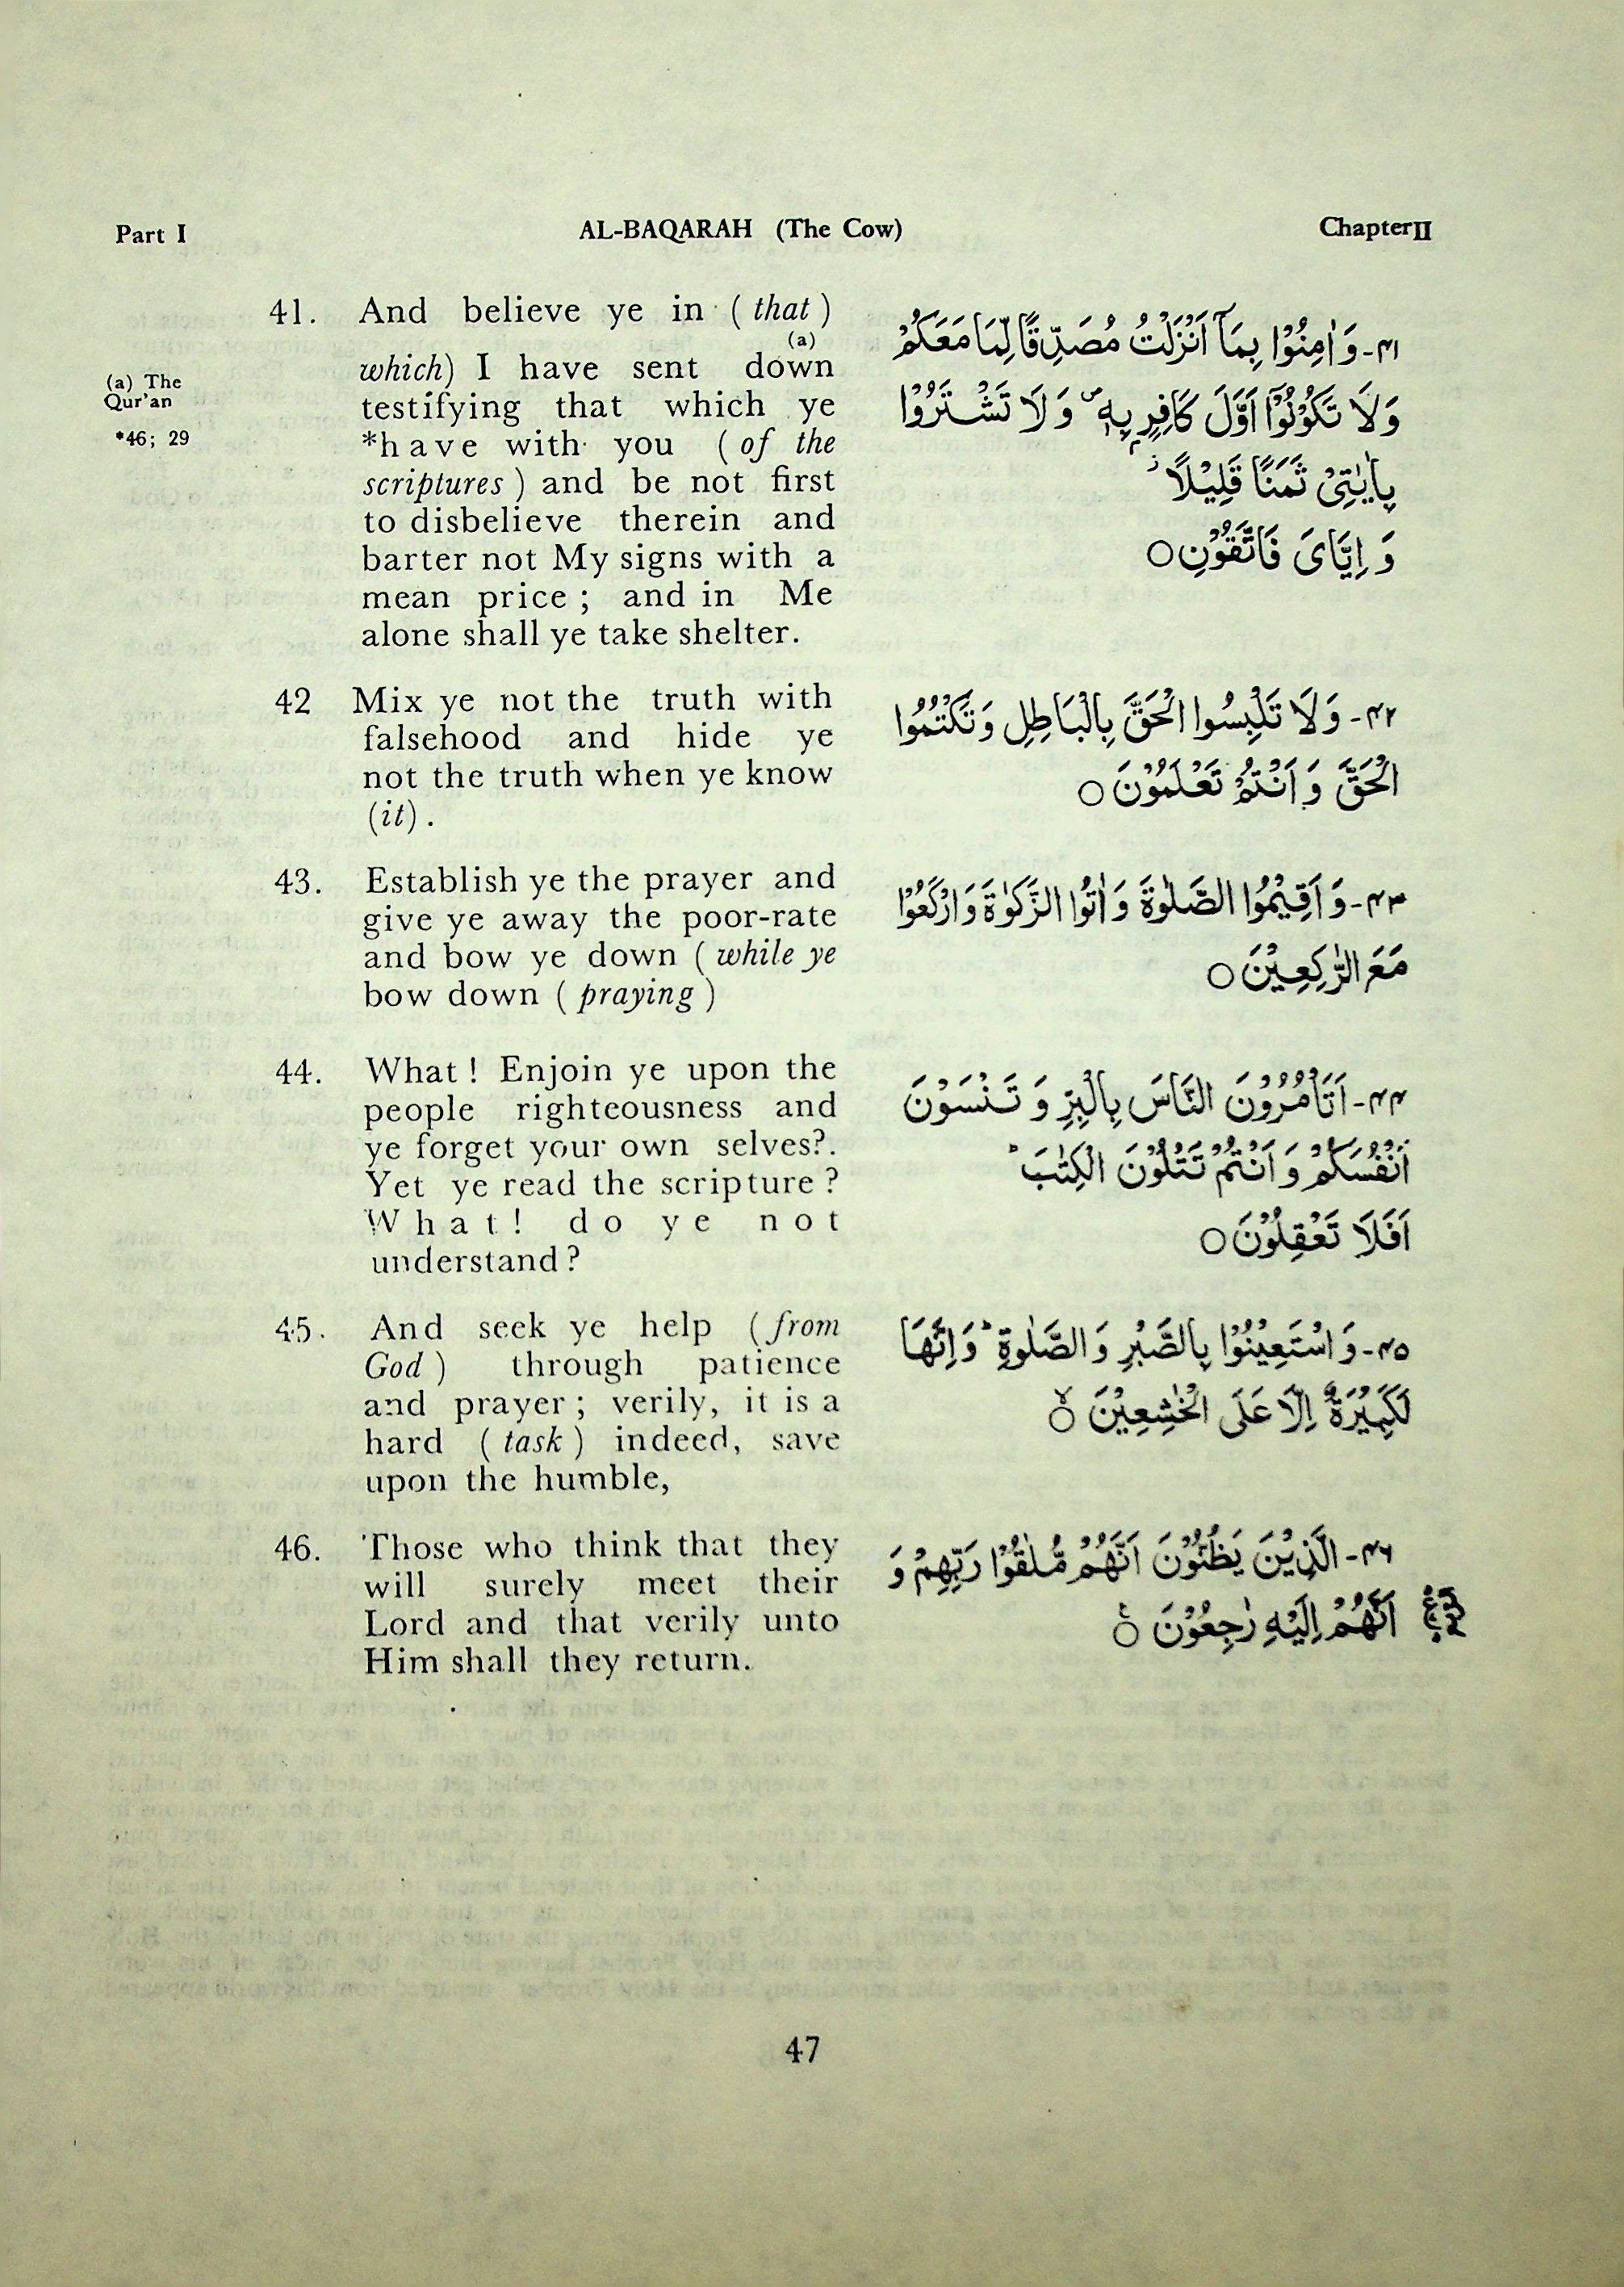 Part I
AL-BAQARAH (The Cow)
Chapter II
41. And believe ye in (that)
(a)
which) I have sent down
testifying that which ye
*have with you (of the
scriptures) and be not first
to disbelieve therein and
barter not My signs with a
mean price; and in Me
alone shall ye take shelter.
(a) The
Qur'an
*46; 29
۴۱- وَ اٰمِنُوْا بِمَاۤ اَنْزَلْتُ مُصَدِّقًا لِّمَا مَعَكُمْ
وَلَا تَكُوْنُوْۤا اَوَّلَ كَافِرٍۭ بِهٖ ۪ وَ لَا تَشْتَرُوْا
بِاٰيٰتِىْ ثَمَنًا قَلِيْلًا ؗ
وَ اِيَّاىَ فَاتَّقُوْنِ ○
42 Mix ye not the truth with
falsehood and hide ye
not the truth when ye know
(it).
۴۲- وَلَا تَلْبِسُوا الْحَقَّ بِالْبَاطِلِ وَتَكْتُمُوا
الْحَقَّ وَ اَنْتُمْ تَعْلَمُوْنَ ○
43. Establish ye the prayer and
give ye away the poor-rate
and bow ye down (while ye
bow down (praying)
۴۳- وَ اَقِيْمُوا الصَّلٰوةَ وَ اٰتُوا الزَّكٰوةَ وَ ارْكَعُوْا
مَعَ الرّٰكِعِيْنَ ○
44. What! Enjoin ye upon the
people righteousness and
ye forget your own selves?.
Yet ye read the scripture?
What! do ye not
understand?
۴۴- اَتَاْمُرُوْنَ النَّاسَ بِالْبِرِّ وَ تَنْسَوْنَ
اَنْفُسَكُمْ وَ اَنْتُمْ تَتْلُوْنَ الْكِتٰبَ ؕ
اَفَلَا تَعْقِلُوْنَ ○
45. And seek ye help (from
God) through patience
and prayer; verily, it is a
hard (task) indeed, save
upon the humble,
۴۵- وَ اسْتَعِيْنُوْا بِالصَّبْرِ وَ الصَّلٰوةِ ؕ وَ اِنَّهَا
لَكَبِيْرَةٌ اِلَّا عَلَى الْخٰشِعِيْنَ ○ۙ
46. Those who think that they
will surely meet their
Lord and that verily unto
Him shall they return.
۴۶- الَّذِيْنَ يَظُنُّوْنَ اَنَّهُمْ مُّلٰقُوْا رَبِّهِمْ وَ
اَنَّهُمْ اِلَيْهِ رٰجِعُوْنَ ○
47